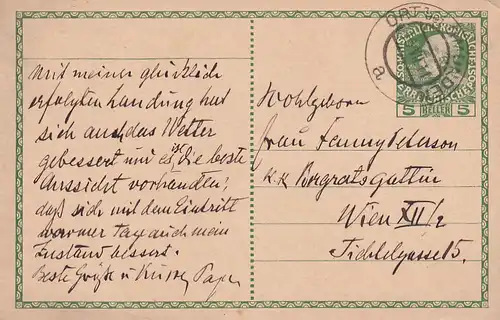 Mit meiner glücklich
erfolgten Landung hat
sich auch das Wetter
gebessert und es ist die beste
Aussicht vorhanden,
daß sich mit dem Eintritt
warmer Tage auch mein
Zustand bessert.
Beste Grüße u Küsse Papa
ORT
a
5 HELLER 5
Wohlgeboren
Frau Fanny Peterson
k.k. Bergratsgattin
Wien XII/2
Tichtelgasse 15.